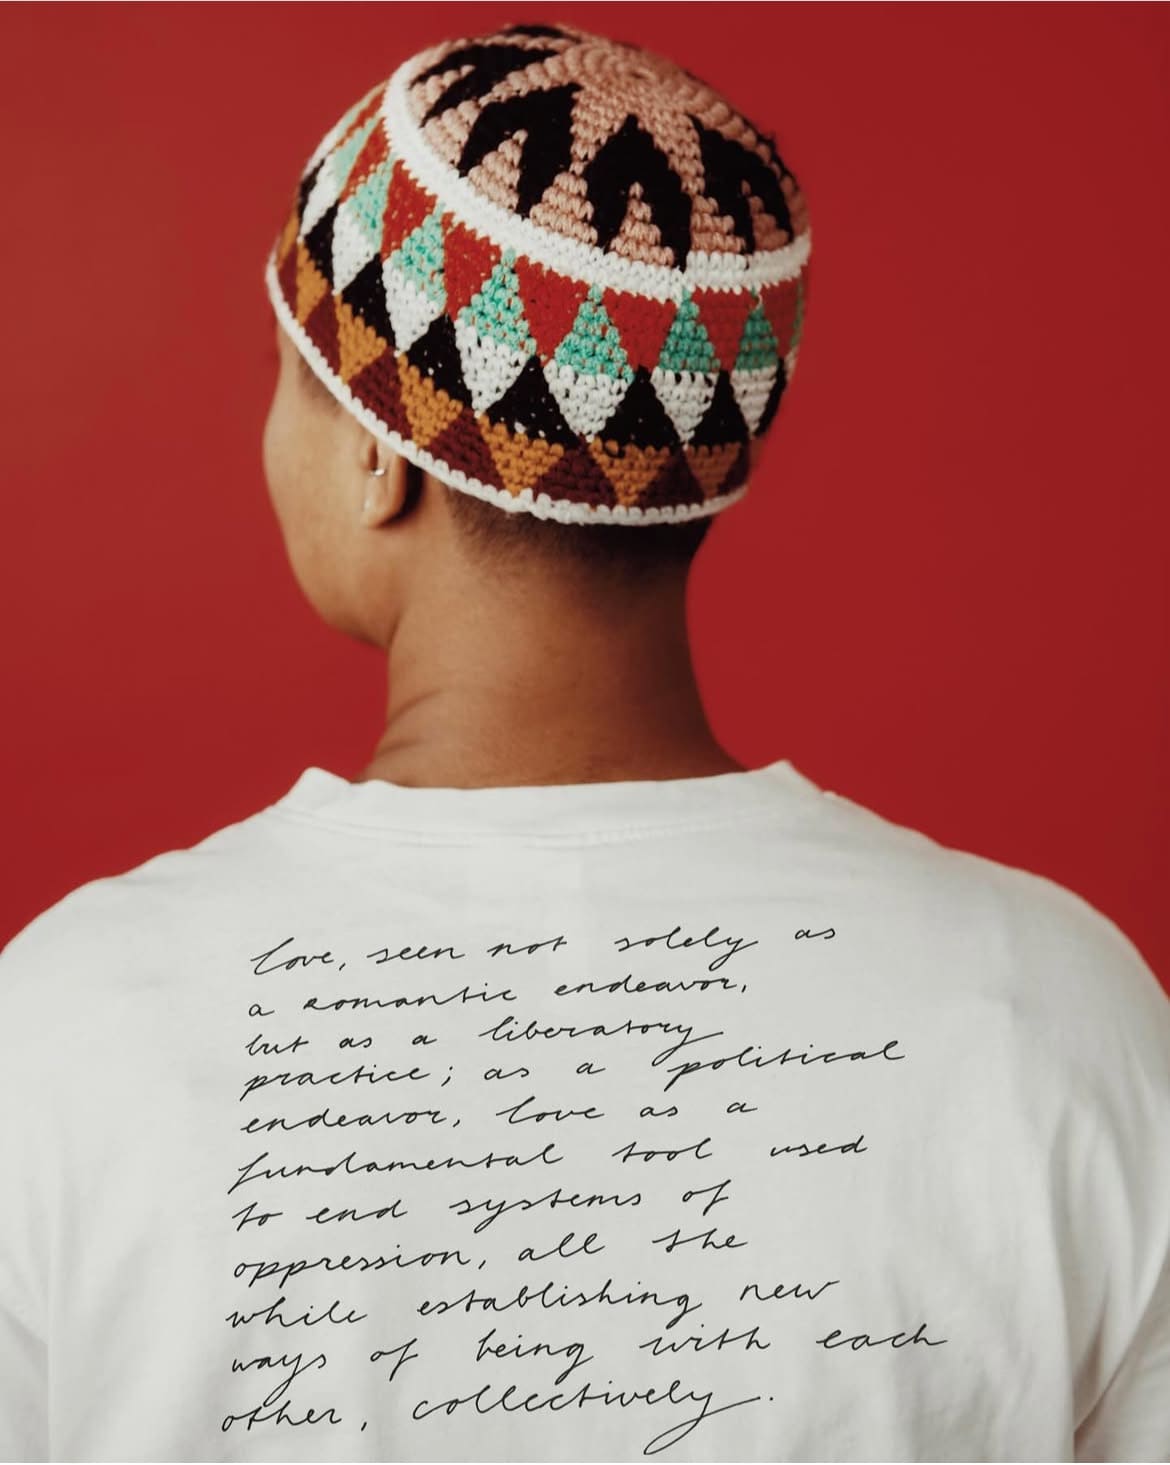 love, seen not solely as
a romantic endeavor,
but as a liberatory
practice; as a political
endeavor, love as a
fundamental tool used
to end systems of
oppression, all the
while establishing new
ways of being with each
other, collectively.